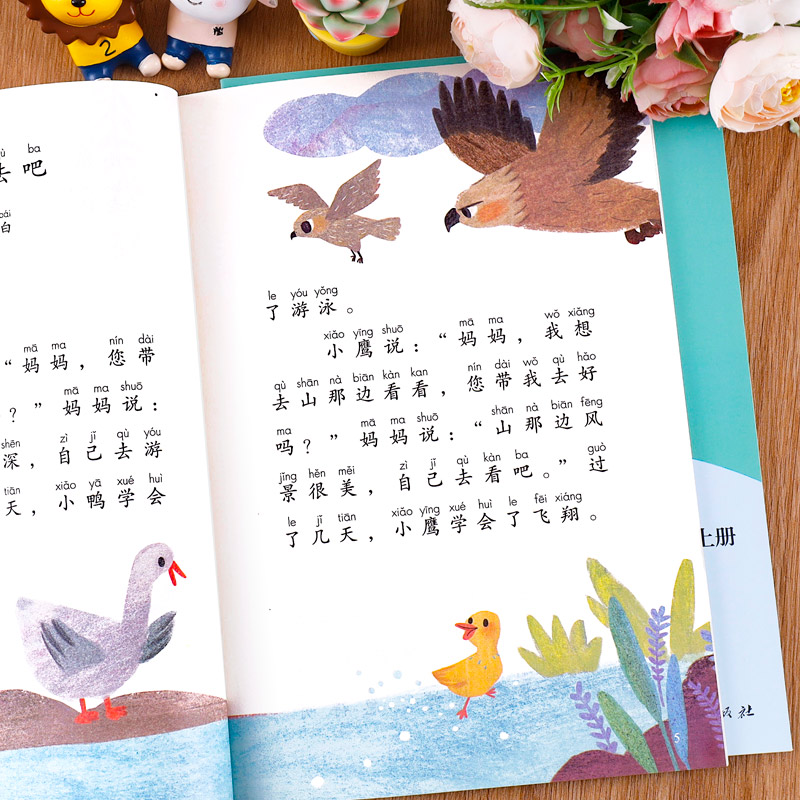 ba
去吧
白
mā ma nín dài
“妈妈，您带
mā ma shuō
？”妈妈说：
shēn zì jǐ qù yóu
深，自己去游
tiān xiǎo yā xué huì
天，小鸭学会
le yóu yǒng
了游泳。
xiǎo yīng shuō mā ma wǒ xiǎng
小鹰说：“妈妈，我想
qù shān nà biān kàn kan nín dài wǒ qù hǎo
去山那边看看，您带我去好
ma mā ma shuō shān nà biān fēng
吗？”妈妈说：“山那边风
jǐng hěn měi zì jǐ qù kàn ba guò
景很美，自己去看吧。”过
le jǐ tiān xiǎo yīng xué huì le fēi xiáng
了几天，小鹰学会了飞翔。
5
2
上册
社